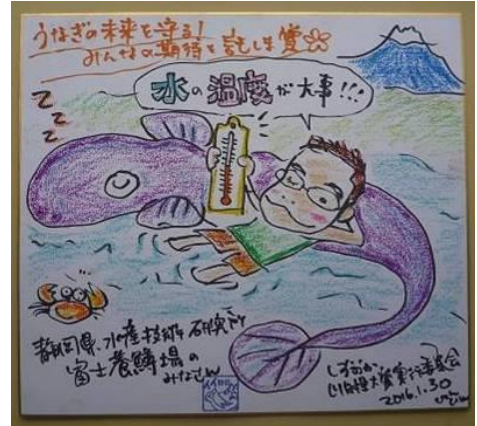 うなぎの未来を守る!
みんなの期待を託しま愛
水の温度が大事!!!
Z
Z
Z
静岡県水産技術研究所
富士養鱒場の
みなさん
しずおか
川自慢大賞実行委員会
2016.1.30